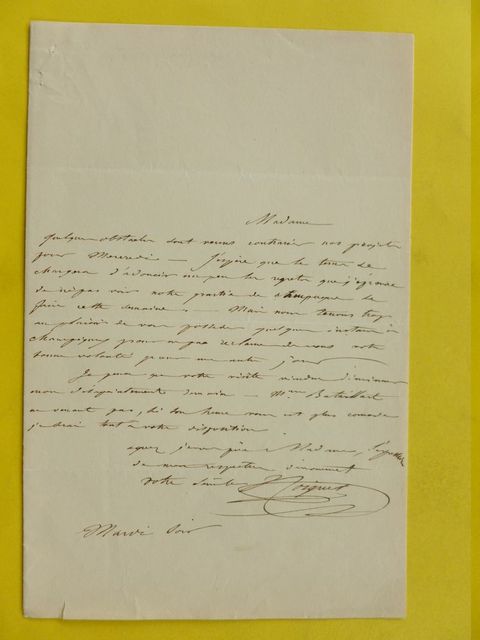 Madame
quelques obstacles sont venus contrarier nos projets
pour Mercredi — J'espère que le tems se
chargera d'adoucir un peu les regrets que j'éprouve
de ne pas voir notre partie de campagne se
faire cette semaine. — Mais nous tenons trop
au plaisir de vous posséder quelques instants à
Champigny pour ne pas réclamer de vous votre
bonne volonté pour un autre jour
Je pense que votre visite
mon demain — Mme Bataillard
ne venant pas, si son heure vous est plus comode
je serai tout à votre disposition
agréez je vous prie Madame,
de mon respectueux dévouement
votre
Mardi soir